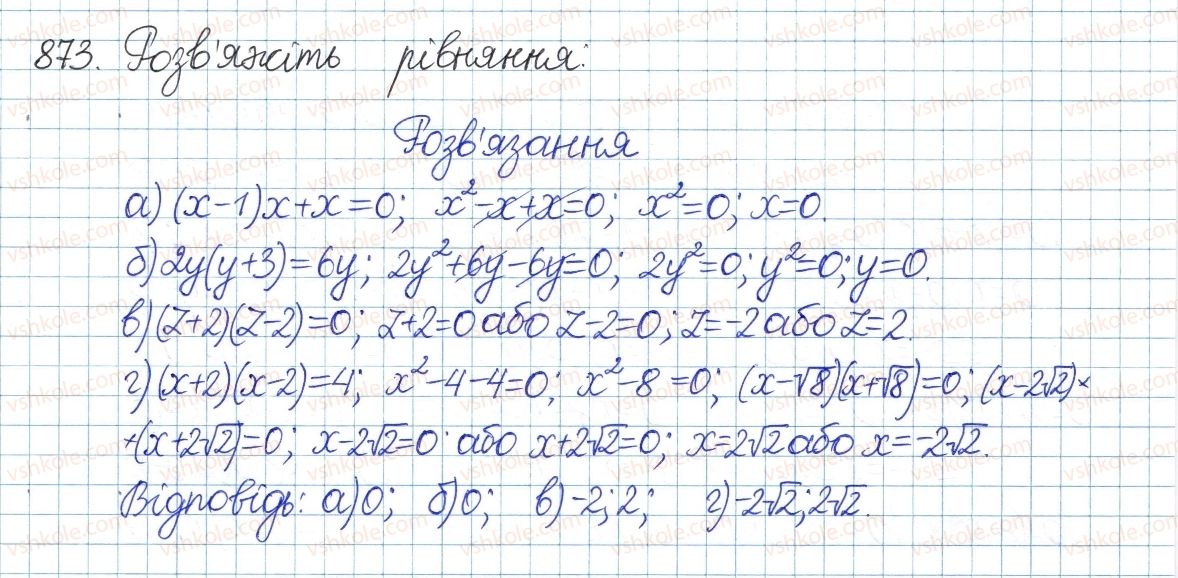 873. Розв'яжіть рівняння:
Розв'язання
а) (x-1)x+x=0; x²-x+x=0; x²=0; x=0.
б) 2y(y+3)=6y; 2y²+6y-6y=0; 2y²=0; y²=0; y=0.
в) (z+2)(z-2)=0; z+2=0 або z-2=0; z=-2 або z=2.
г) (x+2)(x-2)=4; x²-4-4=0; x²-8=0; (x-√8)(x+√8)=0; (x-2√2)×
×(x+2√2)=0; x-2√2=0 або x+2√2=0; x=2√2 або x=-2√2.
Відповідь: а) 0; б) 0; в) -2; 2; г) -2√2; 2√2.